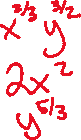 x^{2/3} y^{3/2}
2x^2
y^{5/3}